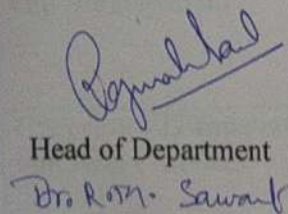 Head of Department
Dr. R.M. Sawant